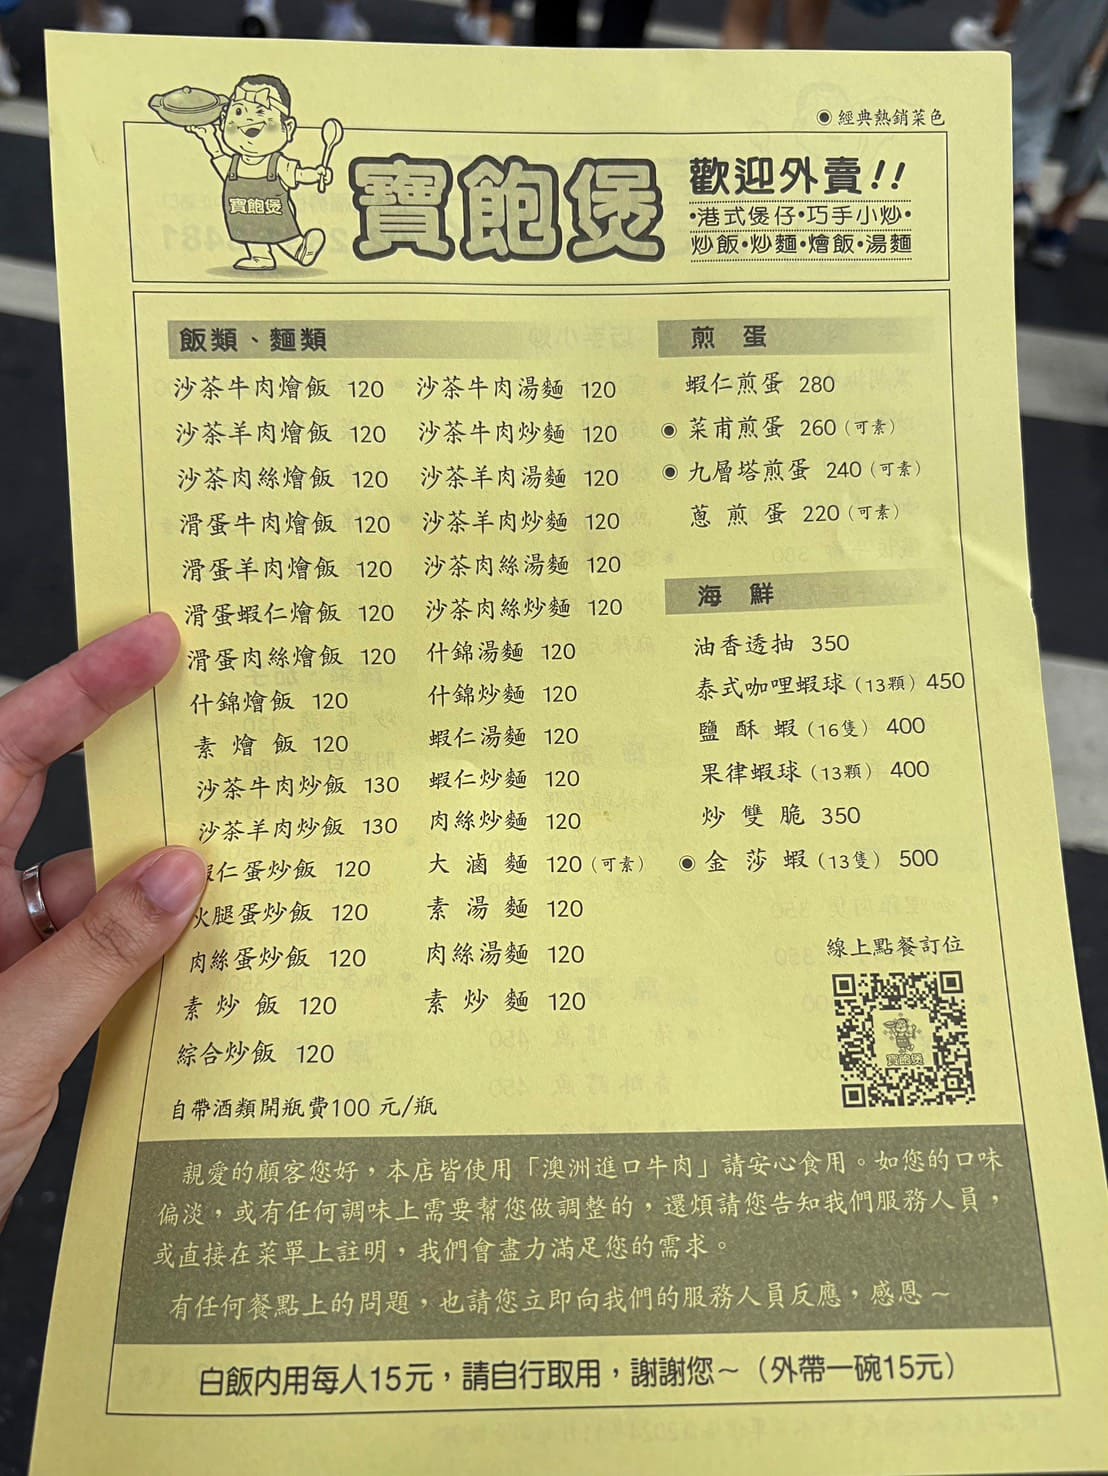 ◉ 經典熱銷菜色
寶飽煲
寶飽煲
歡迎外賣!!
•港式煲仔•巧手小炒•
炒飯•炒麵•燴飯•湯麵
飯類、麵類
沙茶牛肉燴飯 120
沙茶羊肉燴飯 120
沙茶肉絲燴飯 120
滑蛋牛肉燴飯 120
滑蛋羊肉燴飯 120
滑蛋蝦仁燴飯 120
滑蛋肉絲燴飯 120
什錦燴飯 120
素燴飯 120
沙茶牛肉炒飯 130
沙茶羊肉炒飯 130
蝦仁蛋炒飯 120
火腿蛋炒飯 120
肉絲蛋炒飯 120
素炒飯 120
綜合炒飯 120
沙茶牛肉湯麵 120
沙茶牛肉炒麵 120
沙茶羊肉湯麵 120
沙茶羊肉炒麵 120
沙茶肉絲湯麵 120
沙茶肉絲炒麵 120
什錦湯麵 120
什錦炒麵 120
蝦仁湯麵 120
蝦仁炒麵 120
肉絲炒麵 120
大滷麵 120(可素)
素湯麵 120
肉絲湯麵 120
素炒麵 120
自帶酒類開瓶費100 元/瓶
煎蛋
蝦仁煎蛋 280
◉ 菜甫煎蛋 260(可素)
◉ 九層塔煎蛋 240(可素)
蔥煎蛋 220(可素)
海鮮
油香透抽 350
泰式咖哩蝦球(13顆) 450
鹽酥蝦(16隻) 400
果律蝦球(13顆) 400
炒雙脆 350
◉ 金莎蝦(13隻) 500
線上點餐訂位
寶飽煲
親愛的顧客您好，本店皆使用「澳洲進口牛肉」請安心食用。如您的口味
偏淡，或有任何調味上需要幫您做調整的，還煩請您告知我們服務人員，
或直接在菜單上註明，我們會盡力滿足您的需求。
有任何餐點上的問題，也請您立即向我們的服務人員反應，感恩～
白飯內用每人15元，請自行取用，謝謝您～（外帶一碗15元）